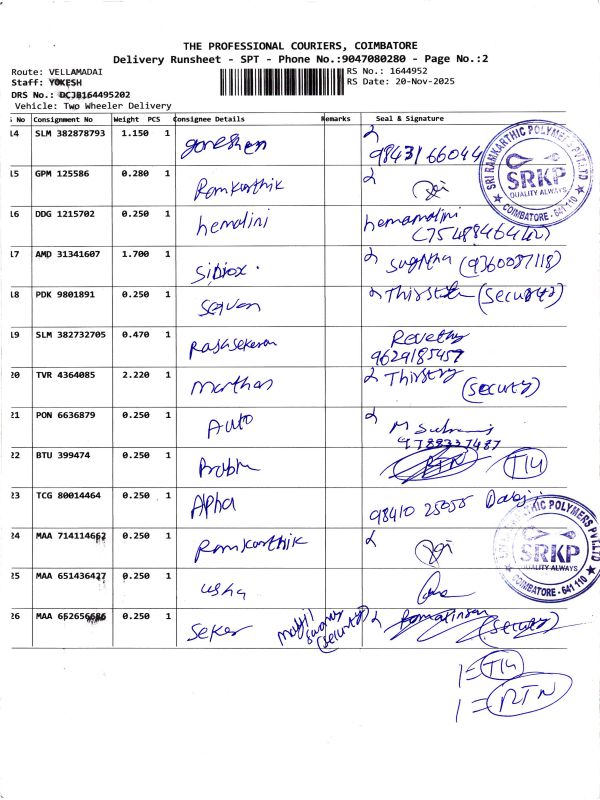 THE PROFESSIONAL COURIERS, COIMBATORE
Delivery Runsheet - SPT - Phone No.:9047080280 - Page No.:2
Route: VELLAMADAI RS No.: 1644952
Staff: YOKESH RS Date: 20-Nov-2025
DRS No.: DCJB164495202
Vehicle: Two Wheeler Delivery
No Consignment No Weight PCS Consignee Details Remarks Seal & Signature
14 SLM 382878793 1.150 1 98431 66044
15 GPM 125586 0.280 1 Ramkarthik
16 DDG 1215702 0.250 1 hemalini hemamalini
17 AMD 31341607 1.700 1 (9360087118)
18 PDK 9801891 0.250 1 (Security)
19 SLM 382732705 0.470 1 Rajasekaran Revathy
9629185459
20 TVR 4364085 2.220 1 (Security)
21 PON 6636879 0.250 1 Auto
9788337487
22 BTU 399474 0.250 1 Prabhu RTN
23 TCG 80014464 0.250 1 Alpha 98410 25055
24 MAA 714114662 0.250 1 Ramkarthik
25 MAA 651436427 0.250 1 usha
26 MAA 0.250 1 Seker (Security) (Security)
1 =
1 = RTN
SRI RAMKARTHIC POLYMERS PVT LTD
SRKP
QUALITY ALWAYS
COIMBATORE - 641 110
SRKP
QUALITY ALWAYS
COIMBATORE - 641 110